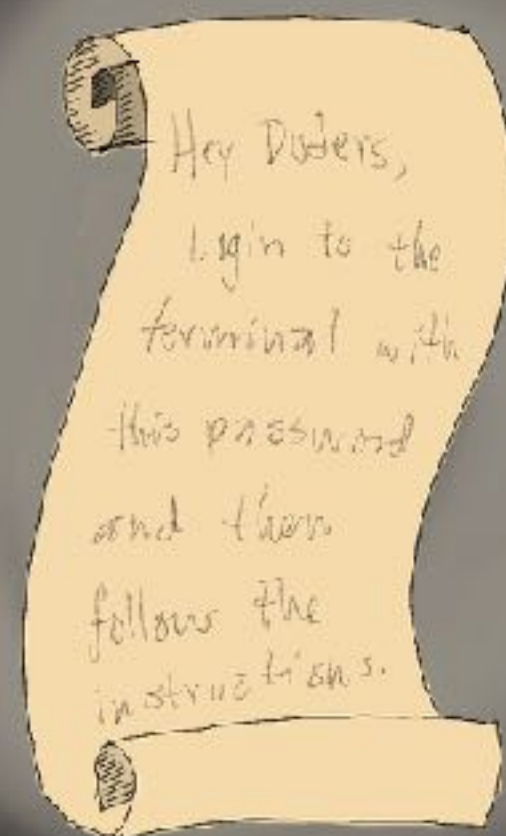 Hey Duders,
Login to the
terminal with
this password
and then
follow the
instructions.